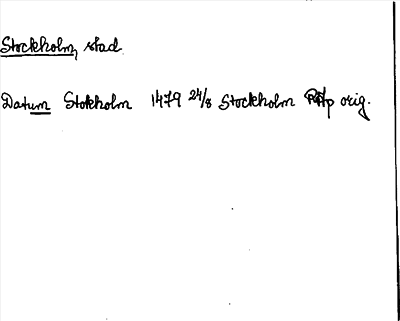 Stockholm, stad.
Datum Stokholm 1479 24/8 Stockholm RAp orig.